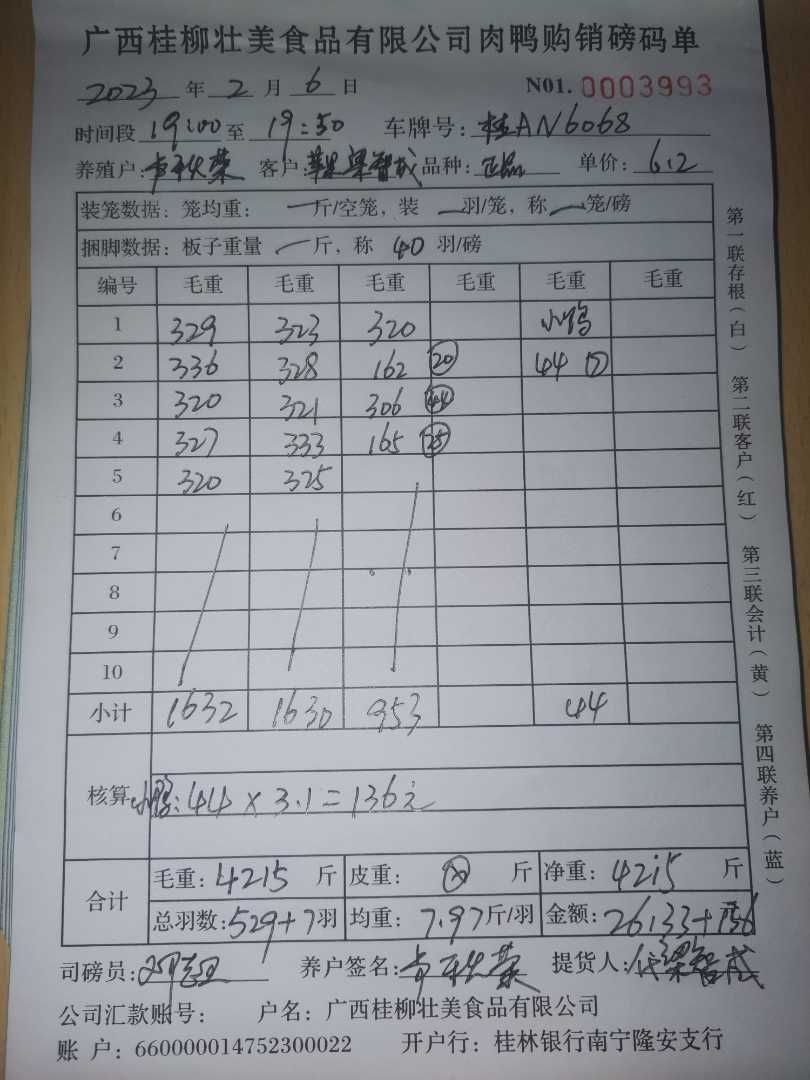 广西桂柳壮美食品有限公司肉鸭购销磅码单
2023 年 2 月 6 日 N01. 0003993
时间段 19:00 至 19:50 车牌号: 桂AN6068
养殖户: 客户: 梁智成 品种: 正品 单价: 6.2
装笼数据: 笼均重: 一斤/空笼, 装 一羽/笼, 称 一笼/磅
捆脚数据: 板子重量 一斤, 称 40 羽/磅
编号 毛重 毛重 毛重 毛重 毛重 毛重
1 329 323 320 小鸭
2 336 328 162 20 44 7
3 320 321 306 44
4 327 333 165 25
5 320 325
6
7
8
9
10
小计 1632 1630 953 44
核算 小鸭: 44 × 3.1 = 136元
合计 毛重: 4215 斤 皮重: 斤 净重: 4215 斤
总羽数: 529+7 羽 均重: 7.97 斤/羽 金额: 26133+136 元
司磅员: 养户签名: 提货人: 代梁智成
公司汇款账号: 户名: 广西桂柳壮美食品有限公司
账 户: 660000014752300022 开户行: 桂林银行南宁隆安支行
第一联存根(白) 第二联客户(红) 第三联会计(黄) 第四联养户(蓝)